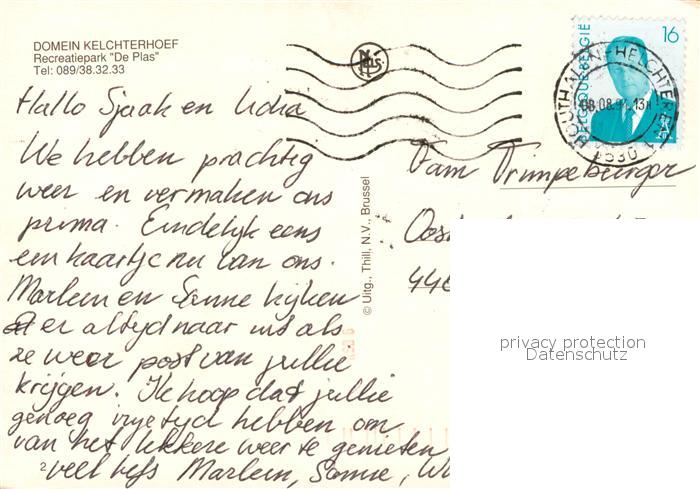 DOMEIN KELCHTERHOEF
Recreatiepark "De Plas"
Tel: 089/38.32.33
Hallo Sjaak en Lidia
We hebben prachtig
weer en vermaken ons
prima. Eindelijk eens
een kaartje nu van ons.
Marleen en Sanne kijken
er altijd naar uit als
ze weer post van jullie
krijgen. Ik hoop dat jullie
genoeg vrije tijd hebben om
van het lekkere weer te genieten
2
veel liefs Marleen, Sanne, W
© Uitg., Thill, N.V., Brussel
BELGIQUE-BELGIË
16
HOUTHALEN-HELCHTEREN 1
08.08.94.13
3530
Fam Trimpeburger
Oost
446
privacy protection
Datenschutz